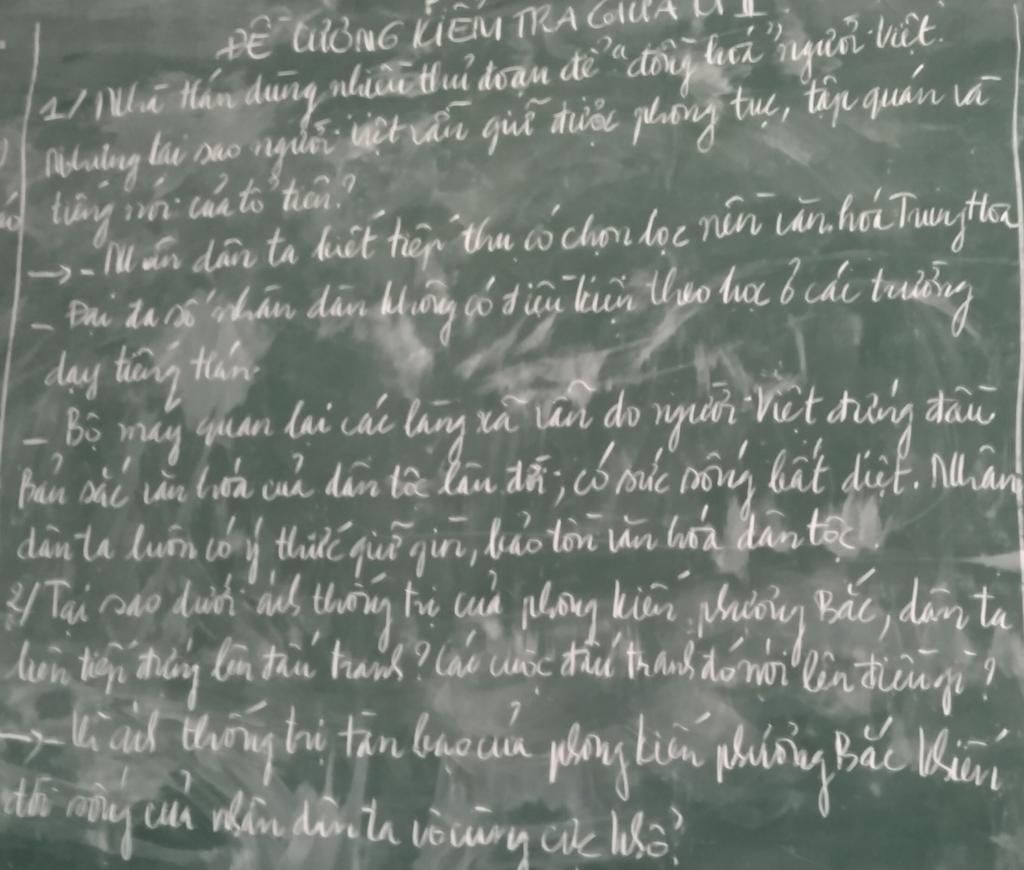 ĐỀ CƯƠNG KIỂM TRA GIỮA
1/ Nhà Hán dùng nhiều thủ đoạn để "đồng hoá" người Việt.
Nhưng tại sao người Việt vẫn giữ được phong tục, tập quán và
tiếng nói của tổ tiên?
→ - Nhân dân ta biết tiếp thu có chọn lọc nền văn hóa Trung Hoa
- Đại đa số nhân dân không có điều kiện theo học ở các trường
dạy tiếng Hán.
- Bộ máy quan lại các làng xã vẫn do người Việt đứng đầu
Bản sắc văn hóa của dân tộc lâu đời, có sức sống bất diệt. Nhân
dân ta luôn có ý thức giữ gìn, bảo tồn văn hóa dân tộc.
2/ Tại sao dưới ách thống trị của phong kiến phương Bắc, dân ta
liên tiếp đứng lên đấu tranh? Các cuộc đấu tranh đó nói lên điều gì?
→ - Vì ách thống trị tàn bạo của phong kiến phương Bắc khiến
đời sống của nhân dân ta vô cùng cực khổ.